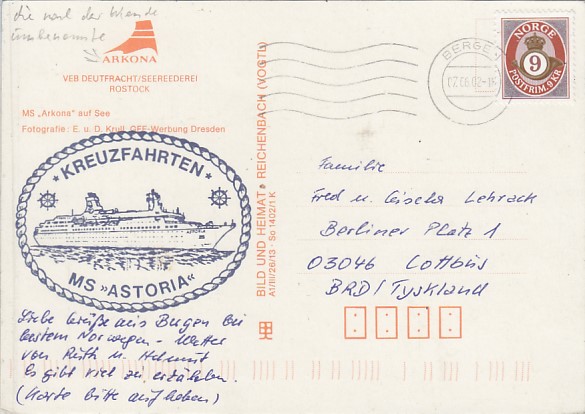 die nach der Wende
umbenannte
ARKONA
VEB DEUTFRACHT/SEEREEDEREI
ROSTOCK
MS „Arkona" auf See
Fotografie: E. u. D. Krull, OFF-Werbung Dresden
KREUZFAHRTEN
MS »ASTORIA«
Liebe Grüße aus Bergen bei
bestem Norwegen-Wetter
von Ruth u. Helmut
Es gibt viel zu erzählen.
(Karte bitte aufheben)
BILD UND HEIMAT REICHENBACH (VOGTL)
A1/III/26/13 So 1402/1 K
BERGEN
NORGE
9
POSTFRIM. 9 KR
Familie
Fred u. Gischa Lehrack
Berliner Platz 1
03046 Cottbus
BRD/Tyskland